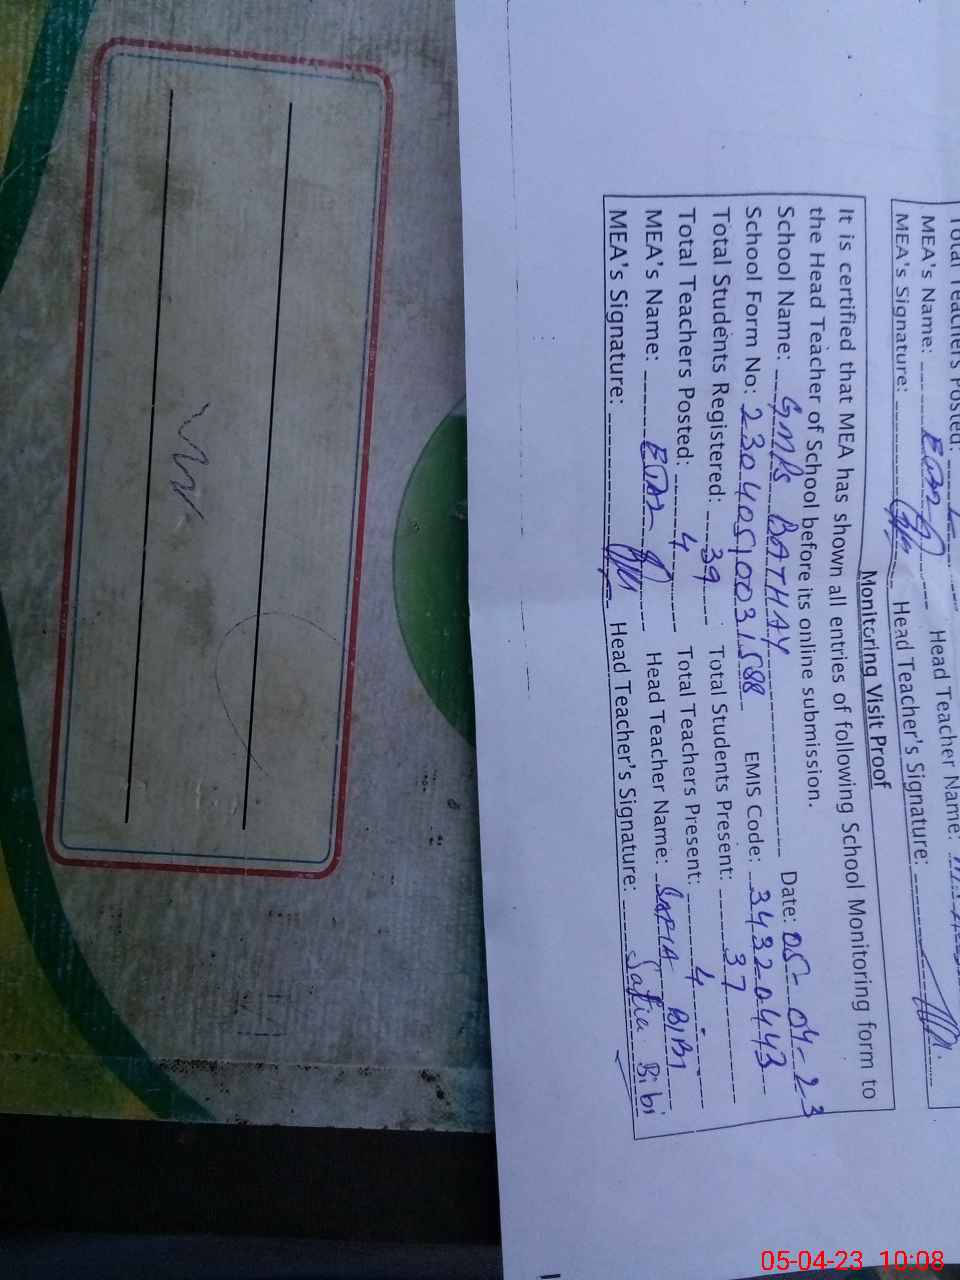 Total Teachers Posted:
Head Teacher Name:
MEA's Name:
MEA's Signature: Head Teacher's Signature:
Monitoring Visit Proof
It is certified that MEA has shown all entries of following School Monitoring form to
the Head Teacher of School before its online submission.
School Name: GMPS BATHAY Date: 05-04-23
School Form No: EMIS Code: 34320443
Total Students Registered: 39 Total Students Present: 37
Total Teachers Posted: 4 Total Teachers Present: 4
MEA's Name: Head Teacher Name: SAFIA BIBI
MEA's Signature: Head Teacher's Signature: Safia Bibi
05-04-23 10:08